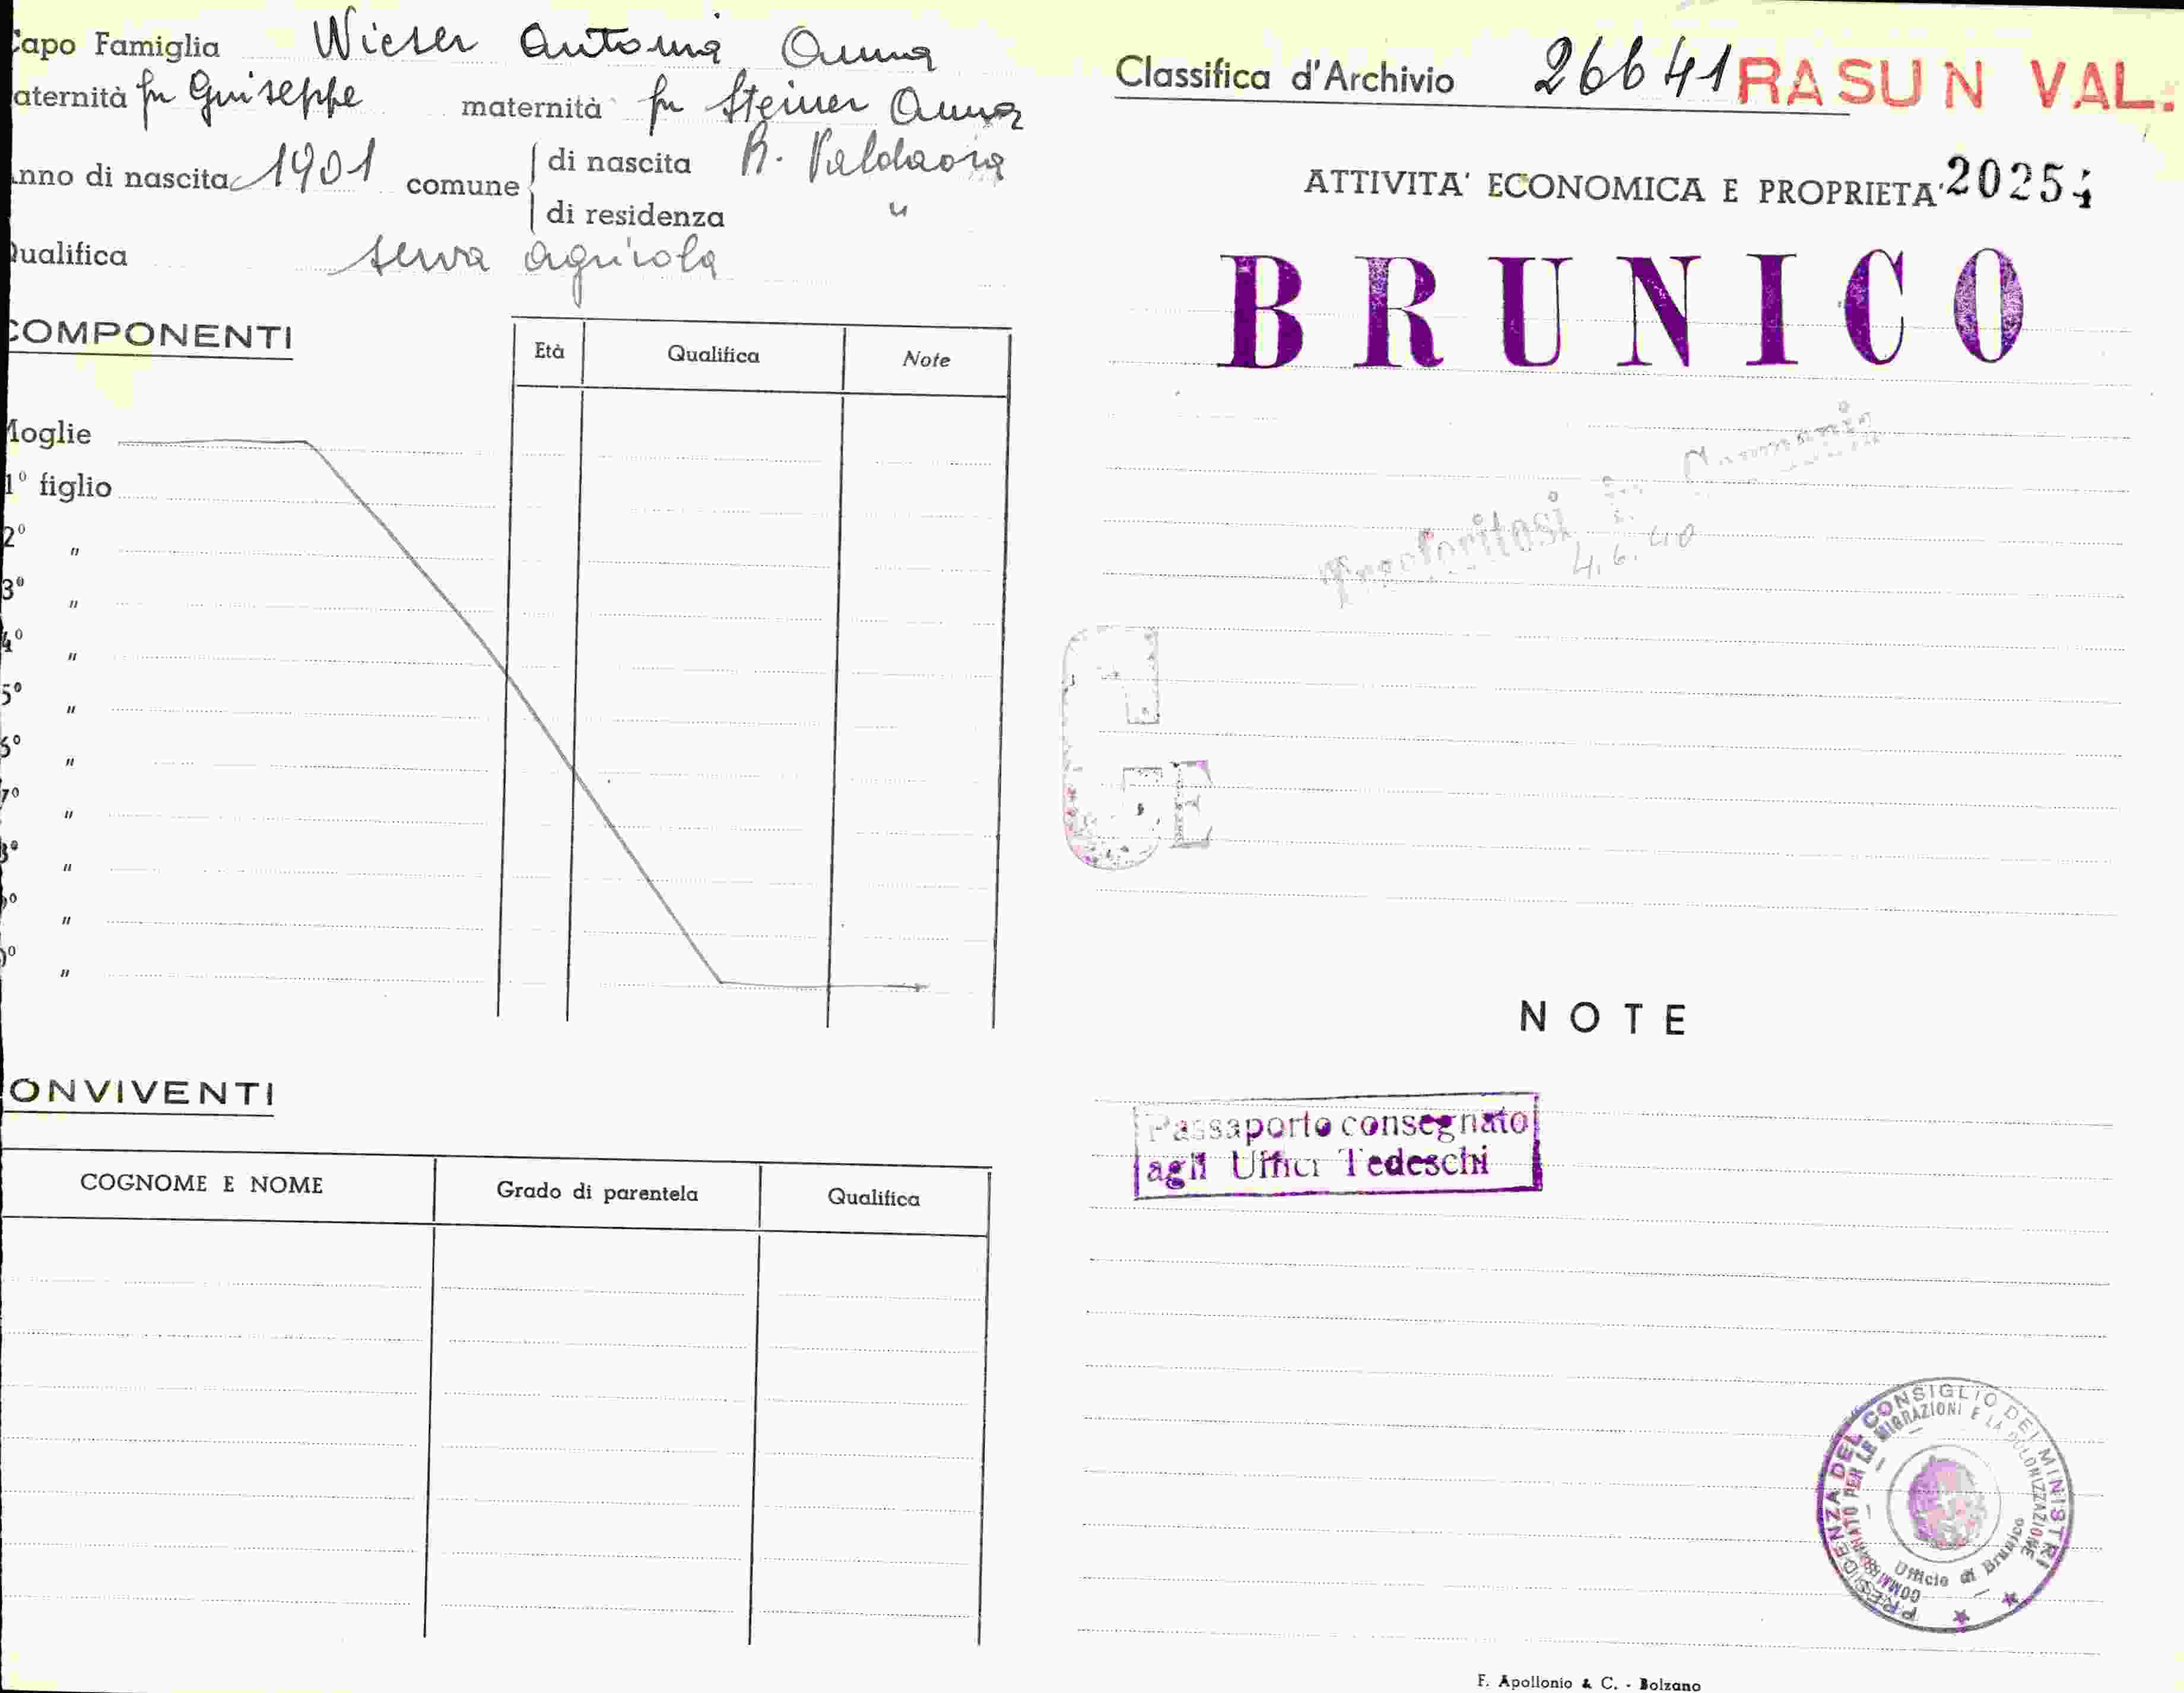 Capo Famiglia Wieser Antonia Anna
aternità fu Giuseppe maternità fu Steiner Anna
nno di nascita 1901 comune di nascita R. Valdaora
di residenza "
Qualifica serva agricola
COMPONENTI
Età Qualifica Note
Moglie
1º figlio
2º "
3º "
4º "
5º "
6º "
7º "
8º "
9º "
0º "
ONVIVENTI
COGNOME E NOME Grado di parentela Qualifica
Classifica d'Archivio 26641 RASUN VAL.
ATTIVITA' ECONOMICA E PROPRIETA' 20254
BRUNICO
Trasferitosi in Germania
4.6.40
NOTE
Passaporto consegnato
agli Uffici Tedeschi
PRESIDENZA DEL CONSIGLIO DEI MINISTRI
COMMISSARIATO PER LE MIGRAZIONI E LA COLONIZZAZIONE
Ufficio di Brunico
F. Apollonio & C. - Bolzano